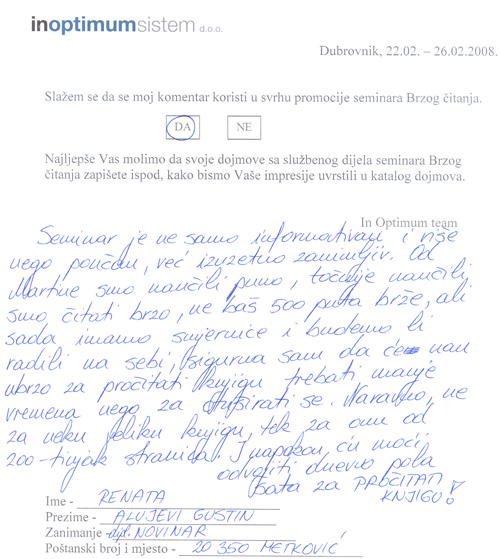 inoptimumsistem d.o.o.
Dubrovnik, 22.02. – 26.02.2008.
Slažem se da se moj komentar koristi u svrhu promocije seminara Brzog čitanja.
DA NE
Najljepše Vas molimo da svoje dojmove sa službenog dijela seminara Brzog
čitanja zapišete ispod, kako bismo Vaše impresije uvrstili u katalog dojmova.
In Optimum team
Seminar je ne samo informativan i više
nego poučan, već izuzetno zanimljiv. Od
Martine smo naučili puno, točnije naučili
smo čitati brzo, ne baš 500 puta brže, ali
sada imamo smjernice i budemo li
radili na sebi, sigurna sam da će nam
ubrzo za pročitati knjigu trebati manje
vremena nego za tuširati se. Naravno, ne
za neku veliku knjigu, tek za onu od
200-tinjak stranica. I napokon ću moći
odvojiti dnevno pola
sata za PROČITATI
KNJIGU!
Ime - RENATA
Prezime - ALUJEVI GUSTIN
Zanimanje - dipl. NOVINAR
Poštanski broj i mjesto - 20 350 METKOVIĆ